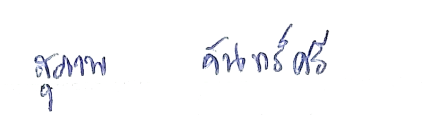 สุภาพ จันทร์ศรี